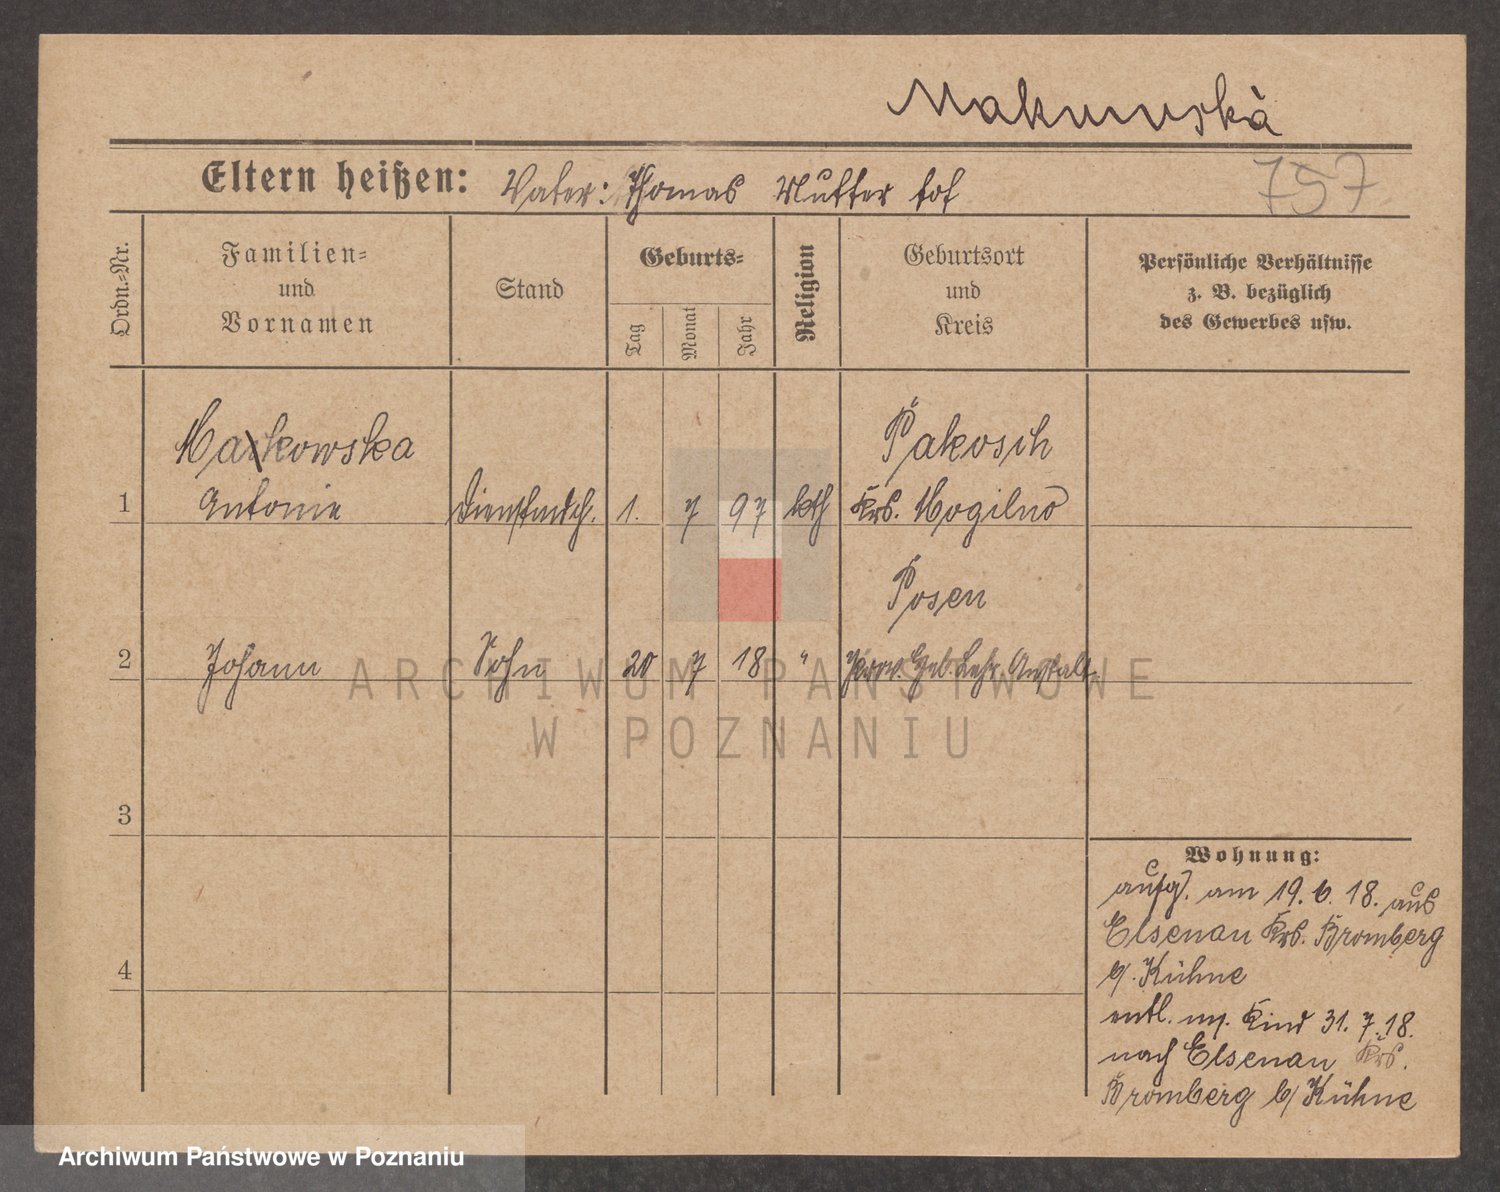 Makowska
757
Eltern heißen: Vater: Thomas Mutter tot
Ordn.-Nr.
Familien-
und
Vornamen
Stand
Geburts-
Tag
Monat
Jahr
Religion
Geburtsort
und
Kreis
Persönliche Verhältnisse
z. B. bezüglich
des Gewerbes usw.
Makowska
Pakosch
1 Antonie Dienstmdch. 1. 7 97 kth Krs. Mogilno
Posen
2 Johann Sohn 20 7 18 " Prov. Geb. Lehr Anstalt.
3
4
Wohnung:
aufg. am 19. 6. 18. aus
Elsenau Krs. Bromberg
b/ Kühne
entl. m. Kind 31. 7. 18.
nach Elsenau Krs.
Bromberg b/ Kühne
ARCHIWUM PAŃSTWOWE
W POZNANIU
Archiwum Państwowe w Poznaniu